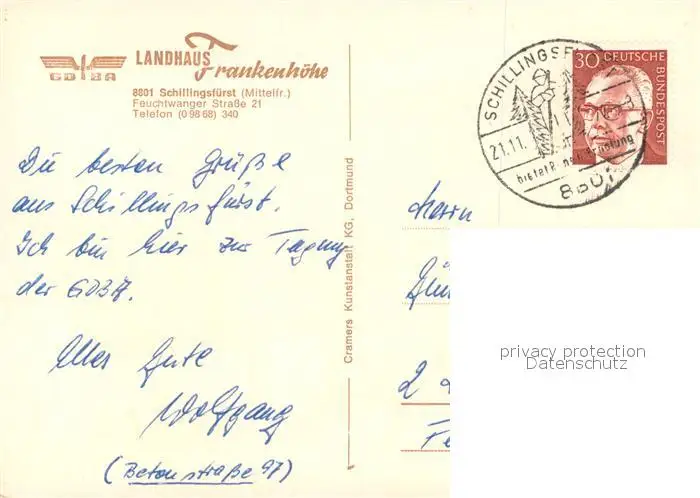 GDBA
LANDHAUS
Frankenhöhe
8801 Schillingsfürst (Mittelfr.)
Feuchtwanger Straße 21
Telefon (0 98 68) 340
Die besten Grüße
aus Schillingsfürst.
Ich bin hier zur Tagung
der GDBA.
Alles Gute
Wolfgang
(Betonstraße 97)
Cramers Kunstanstalt KG, Dortmund
SCHILLINGSF
21.11.
bietet Ruhe und Erholung
8801
30 DEUTSCHE
BUNDESPOST
Herrn
2
privacy protection
Datenschutz